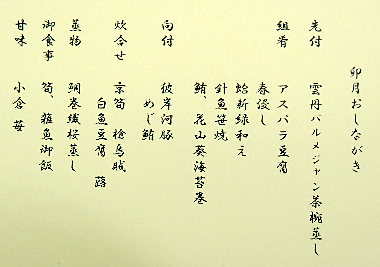 卯月おしながき
先付 雲丹パルメジャン茶椀蒸し
組肴 アスパラ豆腐
春浸し
蛤新緑和え
針魚笹焼
鮪、花山葵海苔巻
向付 彼岸河豚
めじ鮪
炊合せ 京筍 槍烏賊
白魚豆腐 蕗
蒸物 鯛巻繊桜蒸し
御食事 筍、雑魚御飯
甘味 小倉 苺